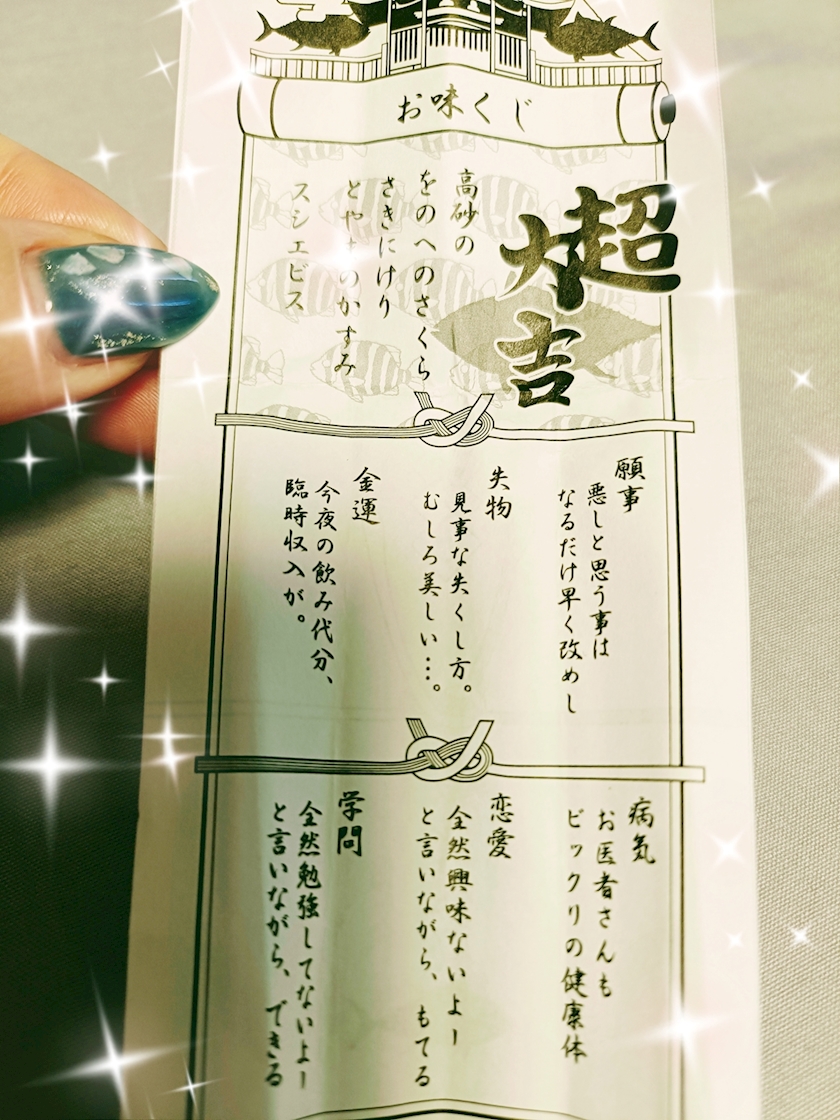 お味くじ
超大吉
高砂の
をのへのさくら
さきにけり
とやまのかすみ
スシエビス
願事
悪しと思う事は
なるだけ早く改めし
失物
見事な失くし方。
むしろ美しい…。
金運
今夜の飲み代分、
臨時収入が。
病気
お医者さんも
ビックリの健康体
恋愛
全然興味ないよー
と言いながら、もてる
学問
全然勉強してないよー
と言いながら、できる